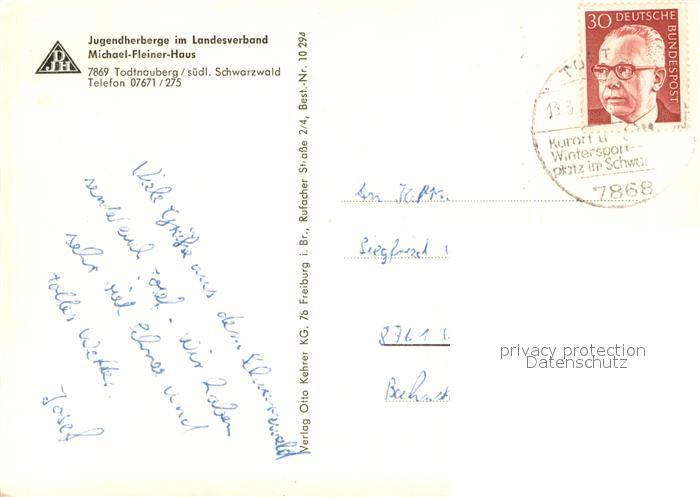 DJH
Jugendherberge im Landesverband
Michael-Fleiner-Haus
7869 Todtnauberg / südl. Schwarzwald
Telefon 07671 / 275
Viele Grüße aus dem Schwarzwald
sendet euch Josef. Wir haben
sehr viel Schnee und
tolles Wetter.
Josef
Verlag Otto Kehrer KG, 78 Freiburg i. Br., Rufacher Straße 2/4, Best.-Nr. 10 294
30 DEUTSCHE
BUNDESPOST
TODT
13.3.
Kurort u
Wintersport-
platz im Schwar
7868
An
Siegfried
8761
privacy protection
Datenschutz